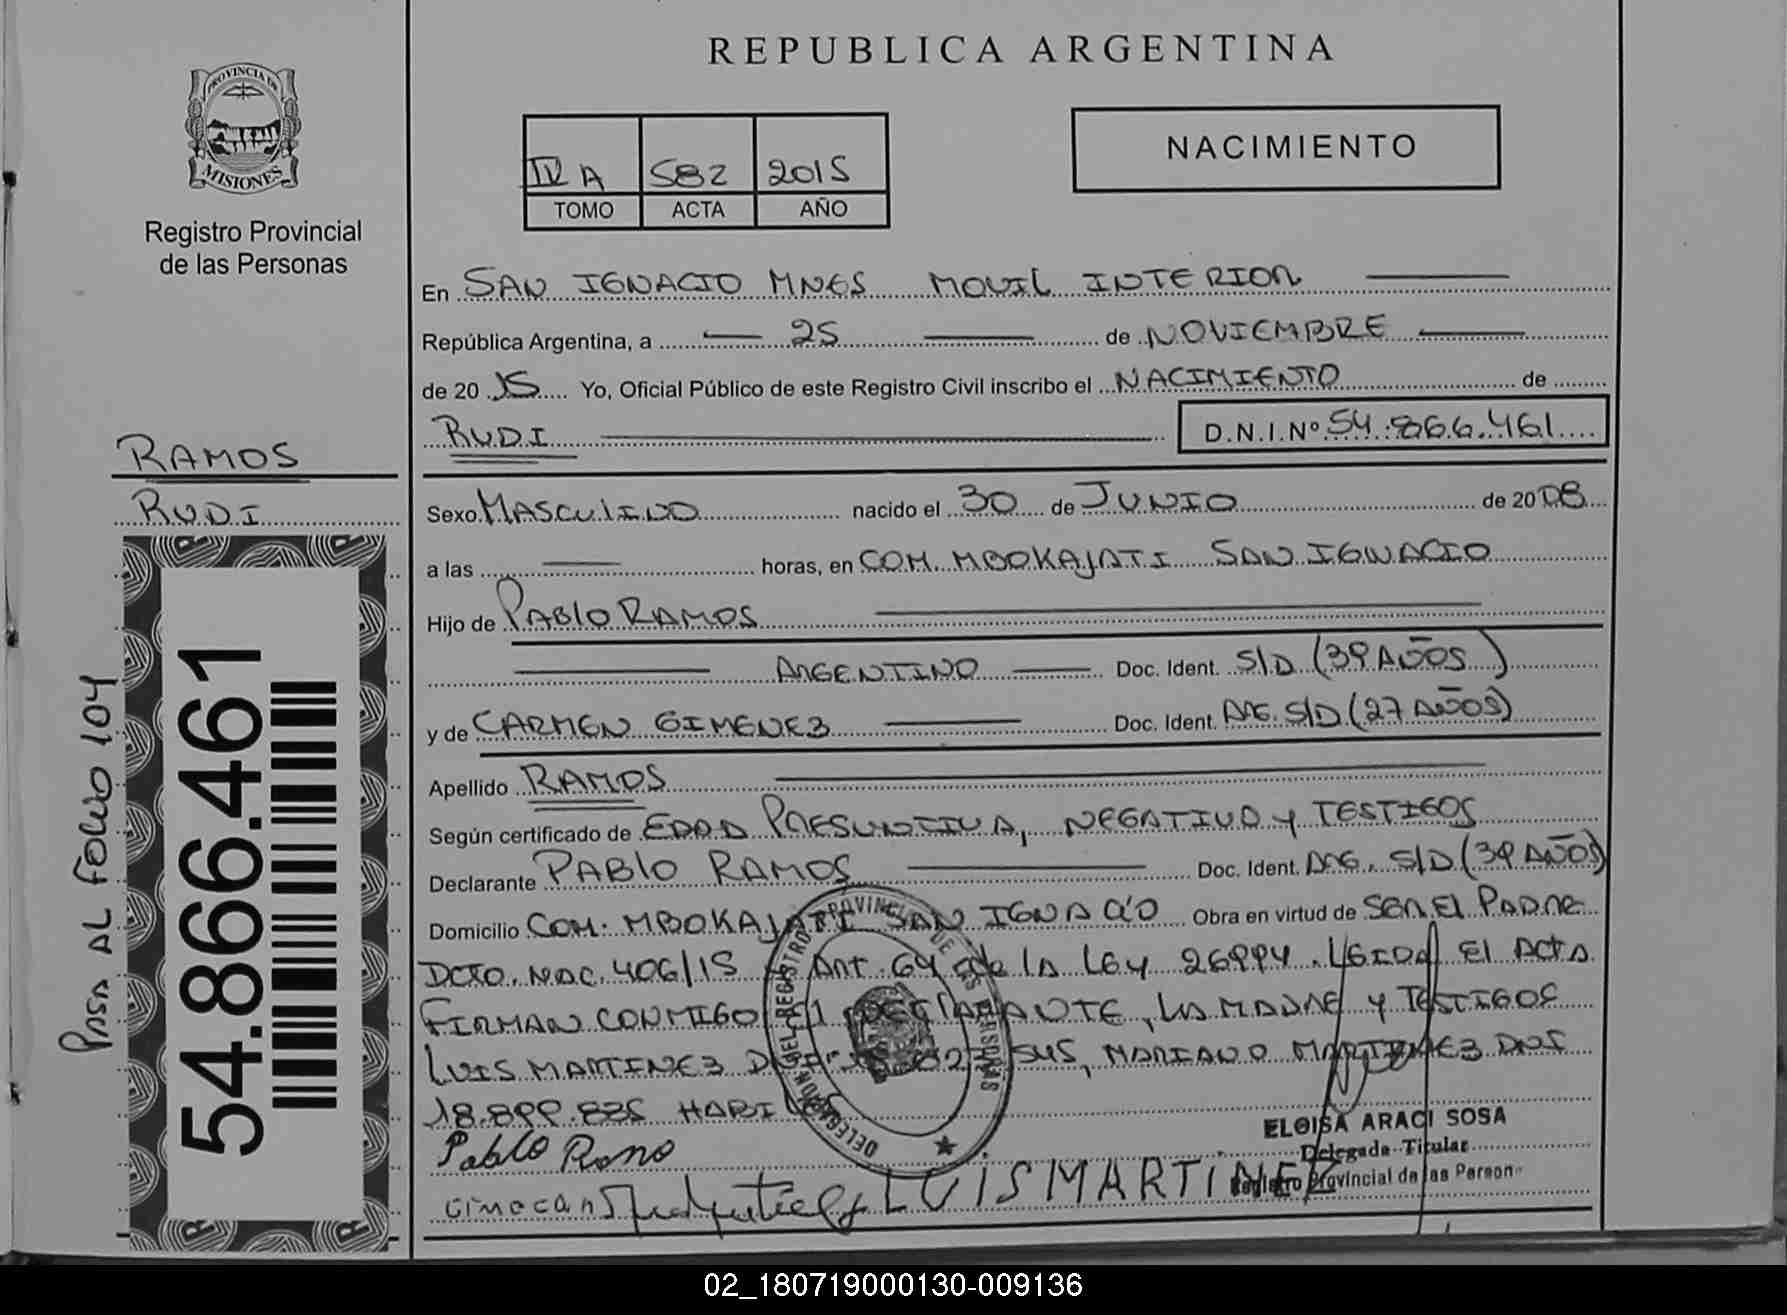 REPUBLICA ARGENTINA
PROVINCIA DE
MISIONES
Registro Provincial
de las Personas
IV A 582 2015
TOMO ACTA AÑO
NACIMIENTO
En SAN IGNACIO MNES MOVIL INTERIOR
República Argentina, a 25 de NOVIEMBRE
de 20 15 Yo, Oficial Público de este Registro Civil inscribo el NACIMIENTO de
RUDI D.N.I.Nº 54.866.461
RAMOS
RUDI
54.866.461
PASA AL FOLIO 104
Sexo MASCULINO nacido el 30 de JUNIO de 20 08
a las horas, en COM. MBOKAJATI SAN IGNACIO
Hijo de PABLO RAMOS
ARGENTINO Doc. Ident. S/D (39 AÑOS)
y de CARMEN GIMENEZ Doc. Ident. ARG. S/D (27 AÑOS)
Apellido RAMOS
Según certificado de EDAD PRESUNTIVA, NEGATIVO Y TESTIGOS
Declarante PABLO RAMOS Doc. Ident. ARG. S/D (39 AÑOS)
Domicilio COM. MBOKAJATI SAN IGNACIO Obra en virtud de SER EL PADRE
DCTO. NAC. 406/15 Art. 64 de la Ley 26994. LEIDA El ACTA
FIRMAN CONMIGO El DECLARANTE, LA MADRE Y TESTIGOS
LUIS MARTINEZ 545, MARIANO MARTINEZ DNI
18.899.835 HABILES
DELEGACION DEL REGISTRO PROVINCIAL DE LAS PERSONAS
Pablo Ramo
LUIS MARTINEZ
ELOISA ARACI SOSA
Delegada Titular
Registro Provincial de las Person
02_180719000130-009136